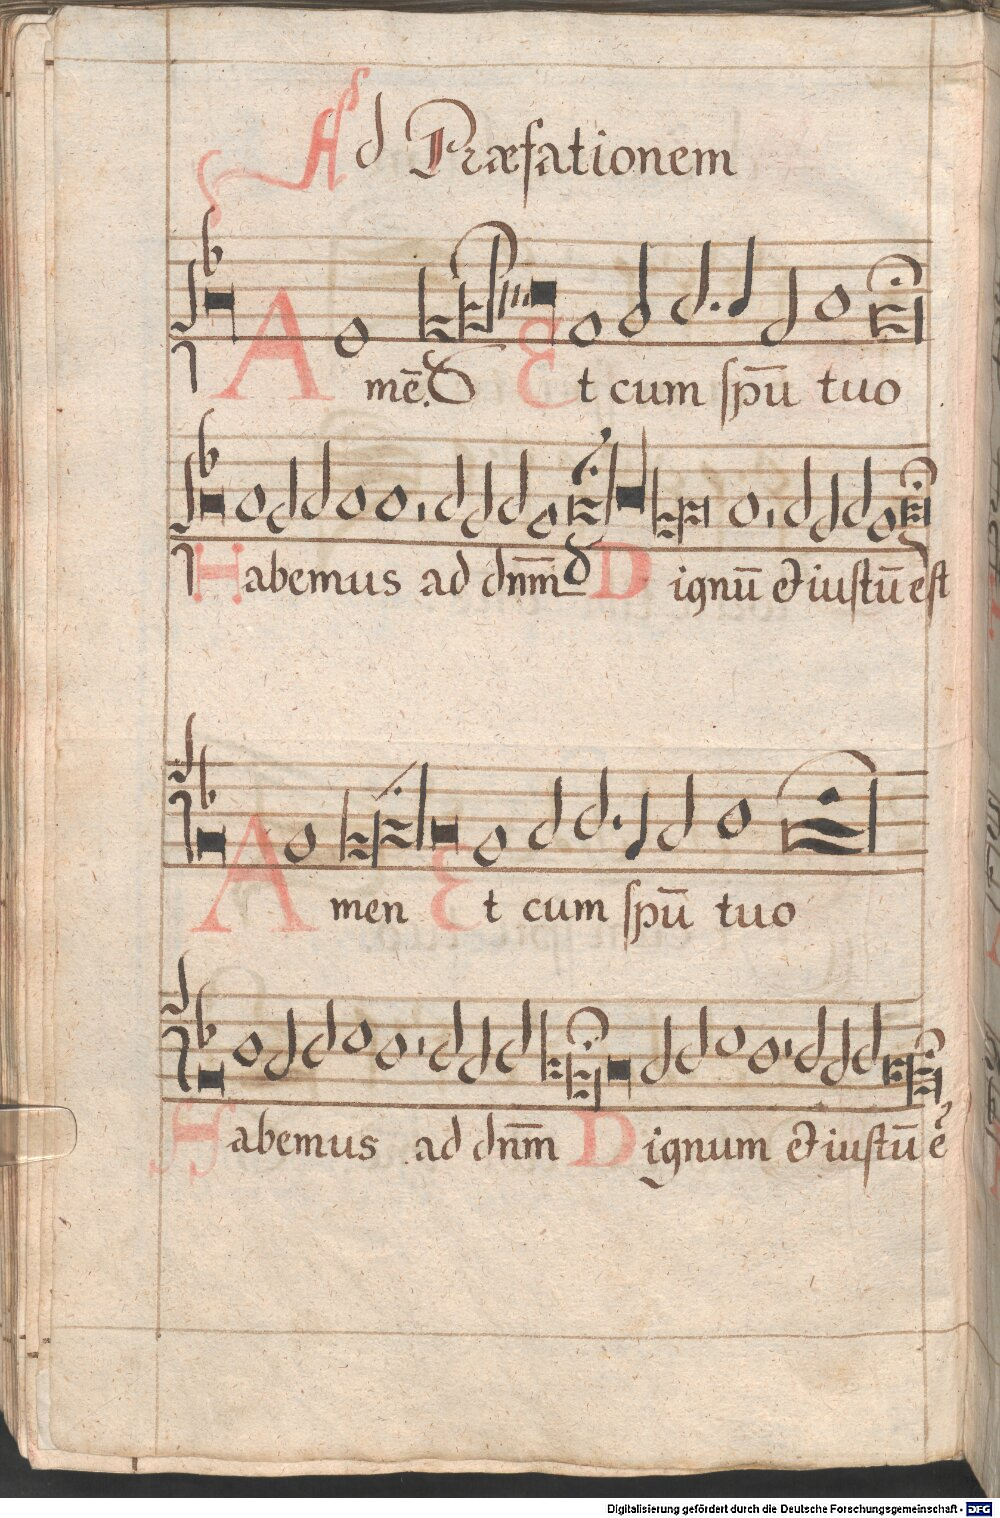 Ad Præfationem
Amē. Et cum spū tuo
Habemus ad dnm̄ Dignū et iustū est
Amen Et cum spū tuo
Habemus ad dnm̄ Dignum et iustū ē
Digitalisierung gefördert durch die Deutsche Forschungsgemeinschaft - DFG